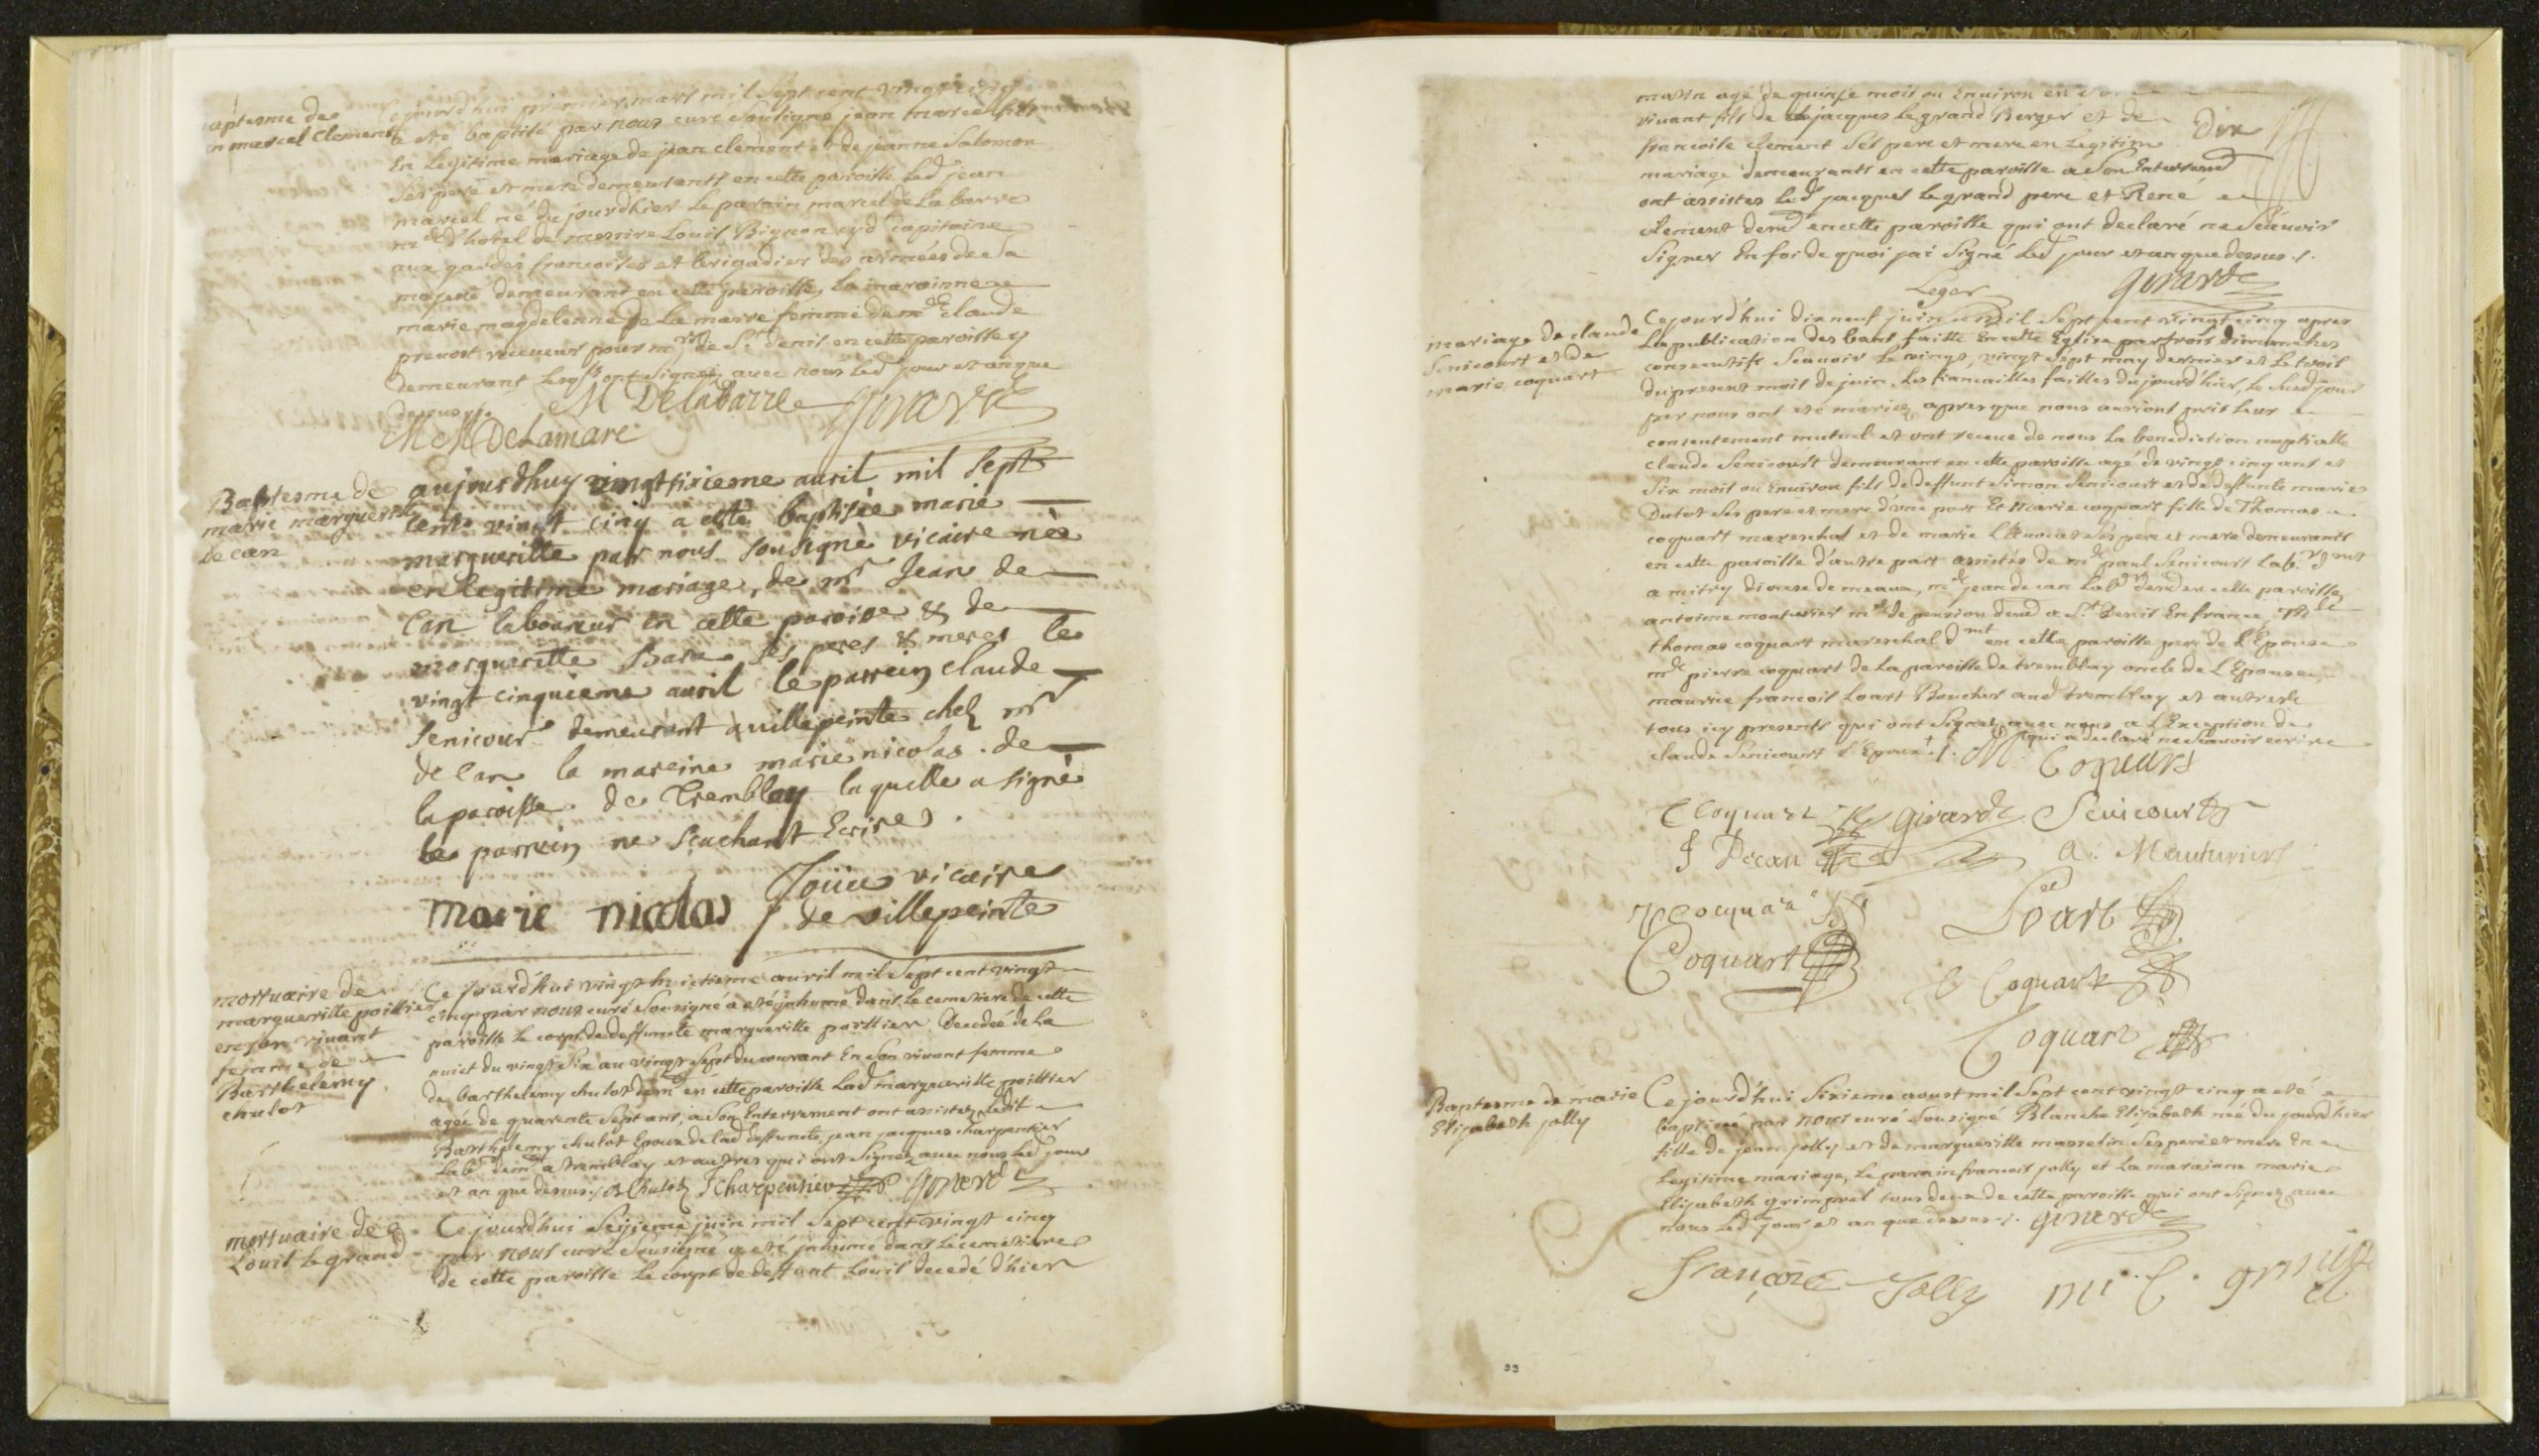 Baptesme de
jean marcel Clement
Cejourd'hui premier mars mil sept cent vingt cinq
a eté baptisé par nous curé sousigné jean marcel fils
En Legitime mariage de jean clement et de jeanne Salomon
ses pere et mere demeurants en cette paroisse Led jean
marcel né du jourd'hier Le parain marcel de La barre
m.e d'hotel de messire Louis Bignon capitaine
aux gardes francoises et brigadier des armées de Sa
majesté demeurant en cette paroisse, La maraine
marie magdelenne de La marre femme de m.e claude
prevost receveur pour m.rs de S.t denis en cette paroisse y
demeurant Lesqls ont signez avec nous Led jour et an que
dessus ./.
M Delabarre Girard
M M DeLamare
Baptesme de
marie marguerite
decan
aujourdhuy vingtsixieme auril mil sept
cents vingt cinq a estè baptisèe marie
margueritte par nous sousignè vicaire nèe
en legitime mariage, de mr Jean de
Can laboureur en cette paroisse & de
margueritte ses peres & meres le
vingt cinquieme auril le parrein claude
Senicour demeurant a villepeinte chez mr
de Can la mareine marie nicolas de
la paroisse de Tremblay laquelle a signè
le parrein ne scachant Ecrire.
vicaire
marie nicolas de villepeinte
mortuaire de
margueritte poittier
en son vivant
femme de
Barthelemy
chulot
Ce jourd'hui vingt huictieme auril mil Sept cent vingt
cinq par nous curé Sousigné a eté jnhumé dans Le cemetiere de cette
paroisse Le corps de deffuncte margueritte poittier Decedeé de La
nuict du vingt Six au vingt Sept du courant En son vivant femme
de barthelemy chulot dem.t en cette paroisse Lad margueritte poittier
ageé de quarente Sept ans, a Son Enterrement ont assistez Ledit
Barthelemy chulot Epoux de lad deffuncte, jean jacques charpentier
Lab.r dem.t a tremblay et autres qui ont signez avec nous Led jour
et an que dessus ./. B Chulot J Charpentier Girard
mortuaire de
Louis Legrand
Cejourd'hui Seizieme juin mil Sept cent vingt cinq
par nous curé Sousigné a eté jnhumé dans Le cemetiere
de cette paroisse Le corps de deffunt Louis decedé d'hier
matin agé de quinse mois ou Environ en son
vivant fils de jacques Legrand Berger et de
francoise clement Ses pere et mere en Legitime
mariage demeurants en cette paroisse a Son Enterremt
ont assistez Led jacques Legrand pere et René
clement demt en cette paroisse qui ont declaré ne Scavoir
signer En foi de quoi jai Signé Led jour et an que dessus ./.
Girard
Dix
mariage de claude
Senicourt et de
marie coquart
Cejourd'hui dix neuf juin mil Sept cent vingt cinq apres
La publication des bans faitte En cette Eglise par trois dimanches
consecutifs Scavoir Le vingt, vingt Sept may dernier et Le trois
du present mois de juin Les fiancailles faittes du jourd'hier, Le susd jour
par nous ont eté mariez apres que nous aurions pris Leur
consentement mutuel et ont receue de nous La benediction nuptialle
claude Senicourt demeurant en cette paroisse agé de vingt cinq ans et
Six mois ou Environ fils de deffunt Simon Senicourt et de deffuncte marie
Dutot Ses pere et mere d'une part Et Marie coquart fille de Thomas
coquart mareschal et de marie L'avocat Ses pere et mere demeurants
en cette paroisse d'autre part assistés de m.e paul Senicourt Lab.r demt
a mitry diocese de meaux, m.e jean de can Lab.r demt en cette paroisse,
antoine monturier m.e de pension demt a S.t Denis En france, M.e
thomas coquart mareschal dmt en cette paroisse pere de L'Epouse
m.e pierre coquart de La paroisse de tremblay oncle de L'Epouse,
maurice francois Loart Boucher aud tremblay et autres
tous icy presents qui ont Signez avec nous a L'Exception de
claude Senicourt L'Epoux ./. qui a declaré ne Scavoir ecrire
M Coquart
Coquart Girard Senicourt
J Decan A. Mauturier
Cocquar Loart
Coquart Coquart
Coquart
Baptesme de marie
Elizabeth jolly
Cejourd'hui Sixieme aoust mil Sept cent vingt cinq a eté
baptisée par nous curé Sousigné Blanche Elizabeth née du jourd'hier
fille de jean jolly et de margueritte masselin Ses pere et mere En
Legitime mariage, Le parain francois jolly et La maraine marie
Elizabeth grimprel tous deux de cette paroisse qui ont Signez avec
nous Led jour et an que dessus ./. Girard
françois Jolly